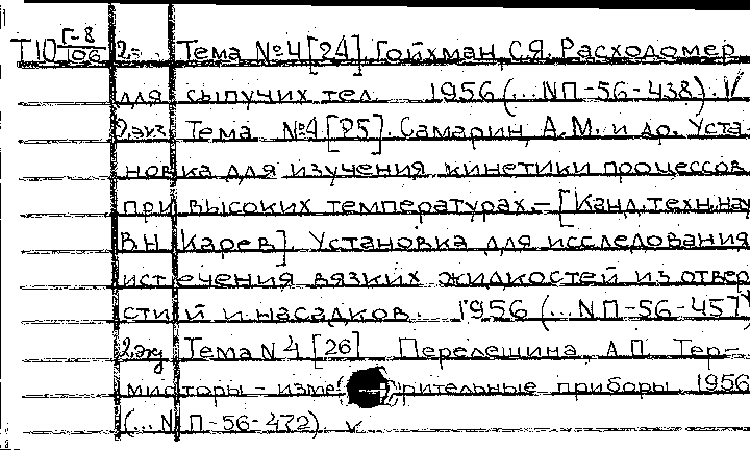 Т10 Г-8/106 2э. Тема №4 [24]. Гойхман, С.Я. Расходомер
для сыпучих тел. 1956 (...NП-56-438). V
2.экз Тема №4 [25]. Самарин, А.М. и др. Уста-
новка для изучения кинетики процессов
при высоких температурах. – [Канд. техн. нау
В.Н. Карев]. Установка для исследования
истечения вязких жидкостей из отвер
стий и насадков. 1956 (...NП-56-457)
2.экз Тема N4 [26] Перелешина, А.П. Тер-
мисторы – измерительные приборы 1956
(...NП-56-472). V